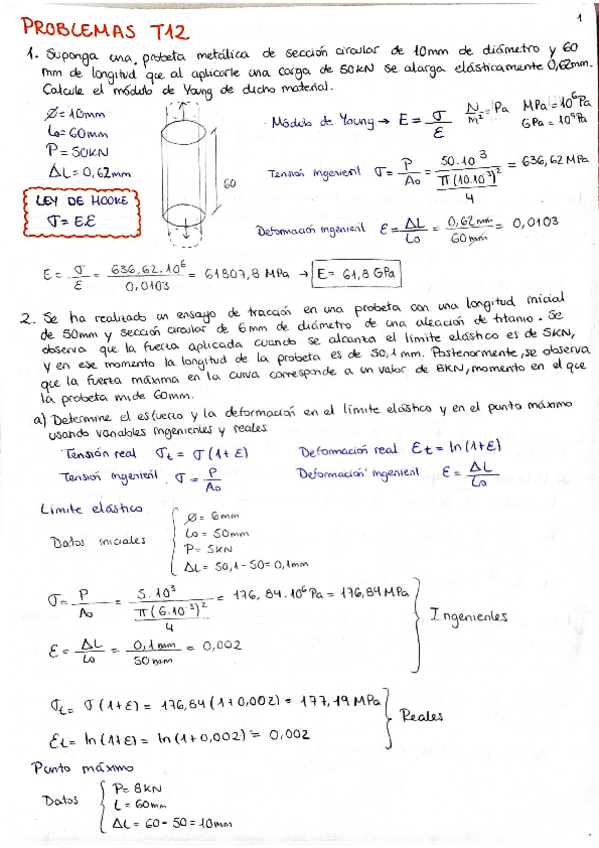 1
PROBLEMAS T12
1. Suponga una probeta metálica de sección circular de 10mm de diámetro y 60
mm de longitud que al aplicarle una carga de 50KN se alarga elásticamente 0,62mm.
Calcule el módulo de Young de dicho material.
Ø = 10mm
Lo = 60mm
P = 50KN
ΔL = 0,62mm
LEY DE HOOKE
σ = Eε
60
Módulo de Young → E = σ/ε N/m² = Pa MPa = 10⁶ Pa
GPa = 10⁹ Pa
Tensión ingenieril σ = P/Ao = 50·10³/(π(10·10³)²/4) = 636,62 MPa
Deformación ingenieril ε = ΔL/Lo = 0,62mm/60mm = 0,0103
E = σ/ε = 636,62·10⁶/0,0103 = 61807,8 MPa → E = 61,8 GPa
2. Se ha realizado un ensayo de tracción en una probeta con una longitud inicial
de 50mm y sección circular de 6mm de diámetro de una aleación de titanio. Se
observa que la fuerza aplicada cuando se alcanza el límite elástico es de 5KN,
y en ese momento la longitud de la probeta es de 50,1 mm. Posteriormente, se observa
que la fuerza máxima en la curva corresponde a un valor de 8KN, momento en el que
la probeta mide 60mm.
a) Determine el esfuerzo y la deformación en el límite elástico y en el punto máximo
usando variables ingenieriles y reales
Tensión real σt = σ(1+ε) Deformación real εt = ln(1+ε)
Tensión ingenieril σ = P/Ao Deformación ingenieril ε = ΔL/Lo
Límite elástico
Datos iniciales
Ø = 6mm
Lo = 50mm
P = 5KN
ΔL = 50,1 - 50 = 0,1mm
σ = P/Ao = 5·10³/(π(6·10⁻³)²/4) = 176,84·10⁶ Pa = 176,84 MPa
Ingenieriles
ε = ΔL/Lo = 0,1mm/50mm = 0,002
σt = σ(1+ε) = 176,84(1+0,002) = 177,19 MPa
Reales
εt = ln(1+ε) = ln(1+0,002) = 0,002
Punto máximo
Datos
P = 8KN
L = 60mm
ΔL = 60 - 50 = 10mm